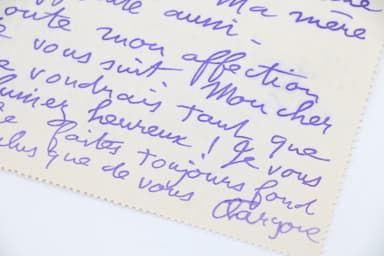 aussi - Ma mère
toute mon affection
vous suit. Mon cher
voudrais tant que
heureux ! Je vous
faites toujours fond
plus que de vous